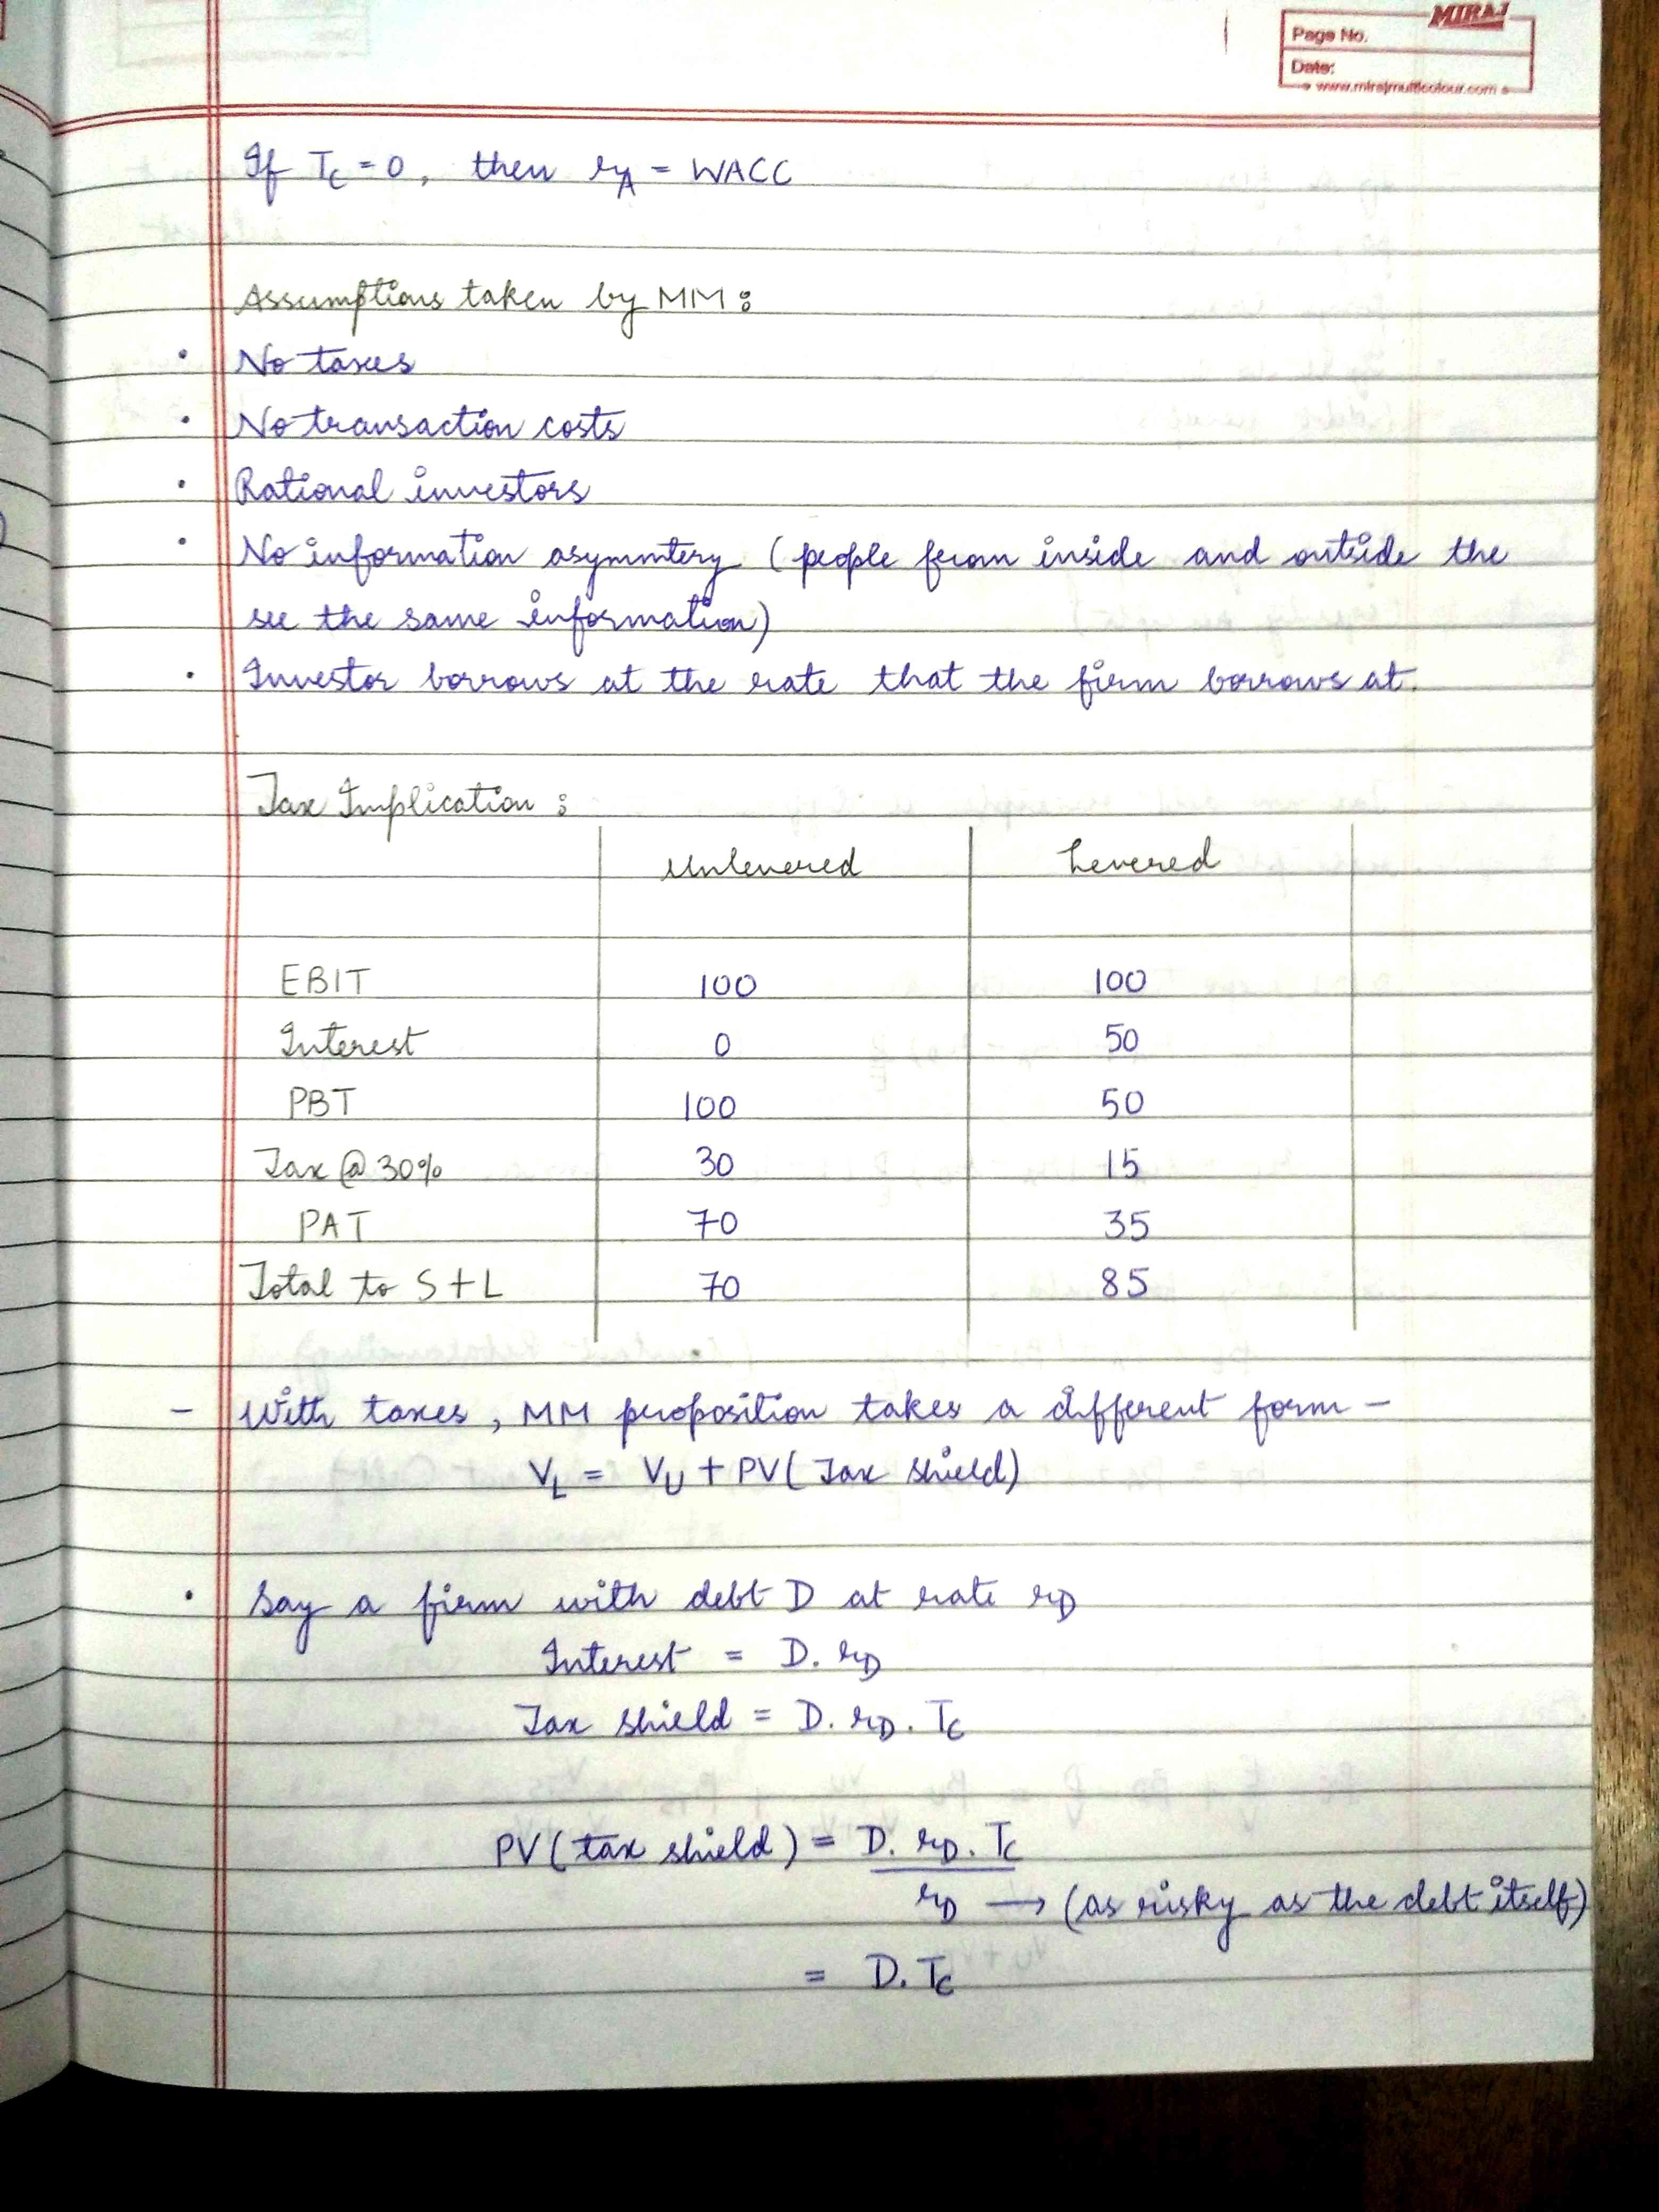 MIRAJ
Page No.
Date:
www.mirajmulticolour.com
If Tc = 0, then rA = WACC
Assumptions taken by MM:
• No taxes
• No transaction costs
• Rational investors
• No information asymmtery (people from inside and outside the
see the same information)
• Investor borrows at the rate that the firm borrows at.
Tax Implication:
Unlevered Levered
EBIT 100 100
Interest 0 50
PBT 100 50
Tax @ 30% 30 15
PAT 70 35
Total to S + L 70 85
- With taxes, MM proposition takes a different form -
VL = VU + PV (Tax shield)
• Say a firm with debt D at rate rD
Interest = D. rD
Tax shield = D. rD. Tc
PV (tax shield) = D. rD. Tc
rD → (as risky as the debt itself)
= D. Tc